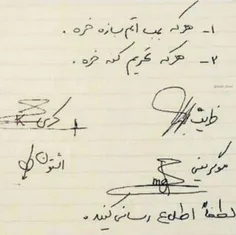 ۱- هرکه بمب اتم بسازه خره .
۲- هرکه تحریم کنه خره .
ظریف
کری
اشتون
موگرینی
لطفاً اطلاع رسانی کنید .